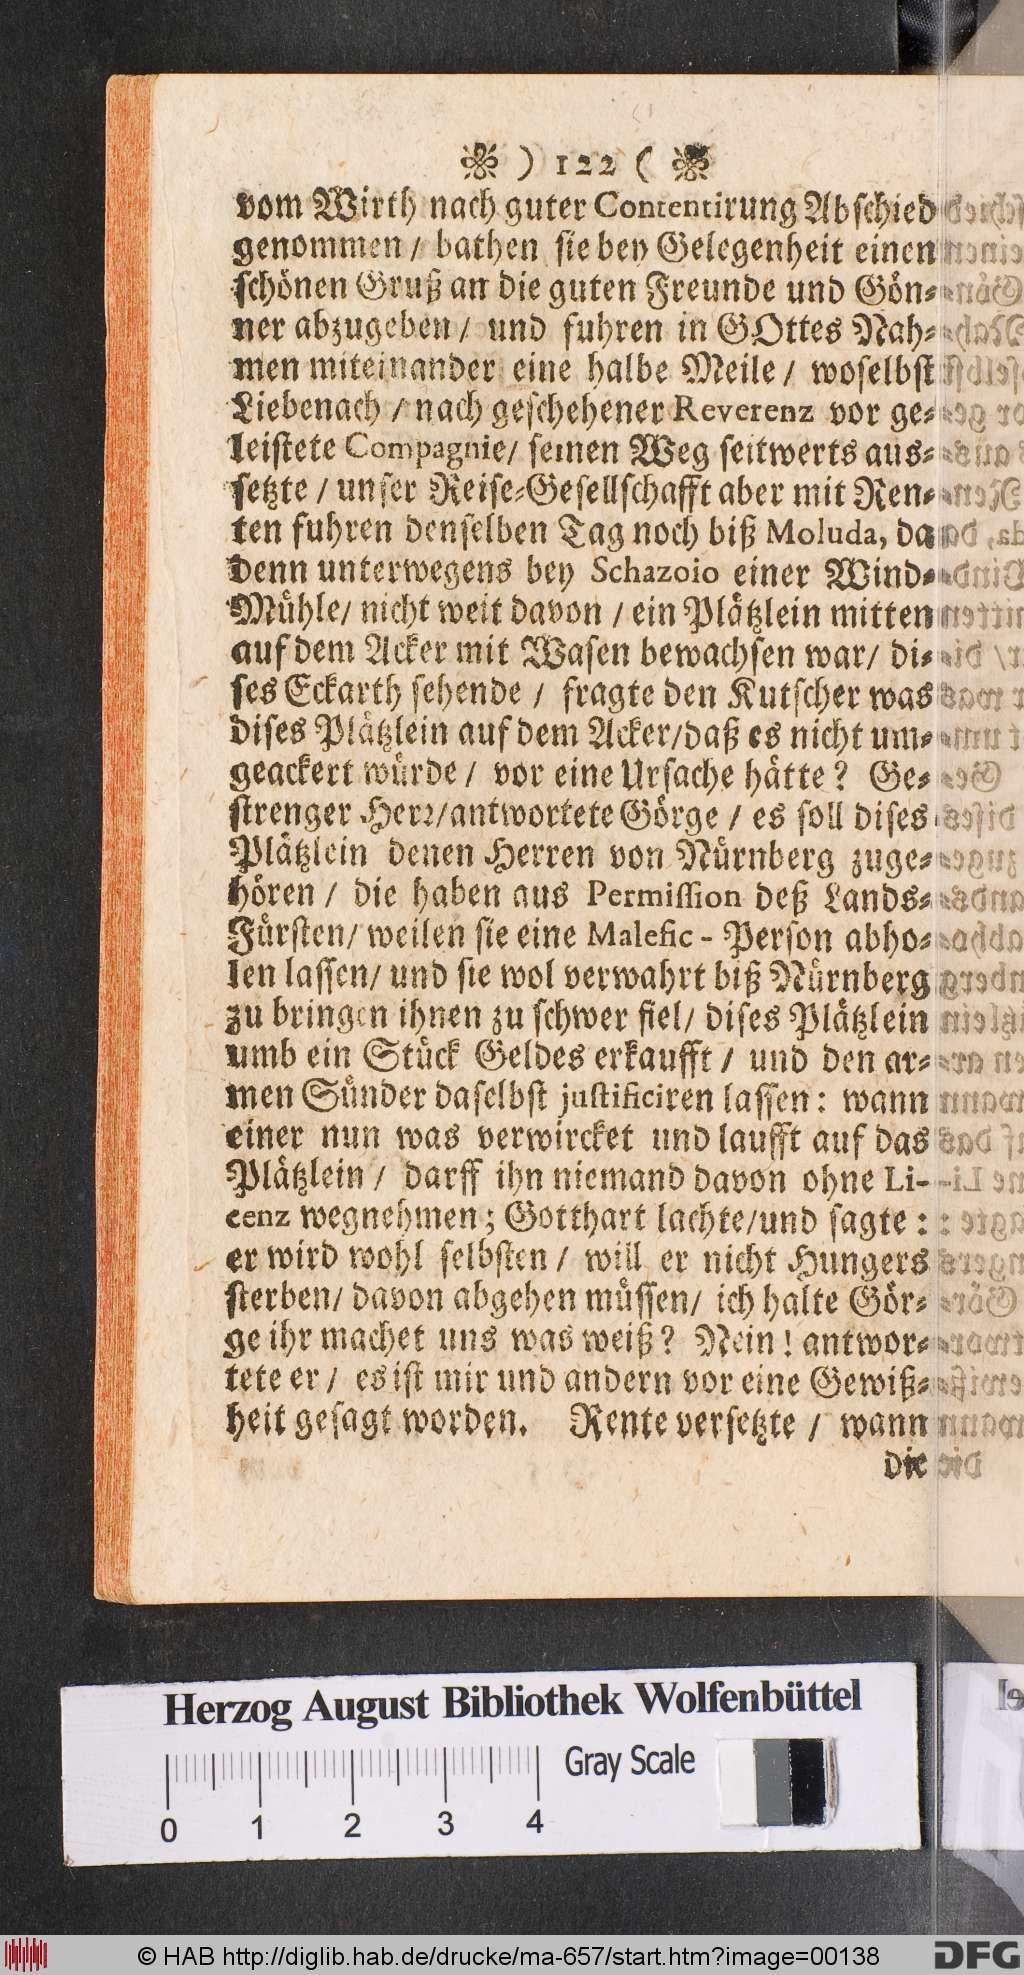 ) 122 (
vom Wirth nach guter Contentirung Abschied
genommen / bathen sie bey Gelegenheit einen
schönen Gruß an die guten Freunde und Gön-
ner abzugeben / und fuhren in GOttes Nah-
men miteinander eine halbe Meile / woselbst
Liebenach / nach geschehener Reverenz vor ge-
leistete Compagnie / seinen Weg seitwerts aus-
setzte / unser Reise-Gesellschafft aber mit Ren-
ten fuhren denselben Tag noch biß Moluda, da
denn unterwegens bey Schazoio einer Wind-
Mühle / nicht weit davon / ein Plätzlein mitten
auf dem Acker mit Wasen bewachsen war / di-
ses Eckarth sehende / fragte den Kutscher was
dises Plätzlein auf dem Acker / daß es nicht um-
geackert würde / vor eine Ursache hätte? Ge-
strenger Herr / antwortete Görge / es soll dises
Plätzlein denen Herren von Nürnberg zuge-
hören / die haben aus Permission deß Lands-
Fürsten / weilen sie eine Malefic - Person abho-
len lassen / und sie wol verwahrt biß Nürnberg
zu bringen ihnen zu schwer fiel / dises Plätzlein
umb ein Stück Geldes erkaufft / und den ar-
men Sünder daselbst justificiren lassen: wann
einer nun was verwircket und laufft auf das
Plätzlein / darff ihn niemand davon ohne Li-
cenz wegnehmen; Gotthart lachte / und sagte:
er wird wohl selbsten / will er nicht Hungers
sterben / davon abgehen müssen / ich halte Gör-
ge ihr machet uns was weiß? Nein! antwor-
tete er / es ist mir und andern vor eine Gewiß-
heit gesagt worden. Rente versetzte / wann
die
Herzog August Bibliothek Wolfenbüttel
Gray Scale
0 1 2 3 4
© HAB http://diglib.hab.de/drucke/ma-657/start.htm?image=00138
DFG